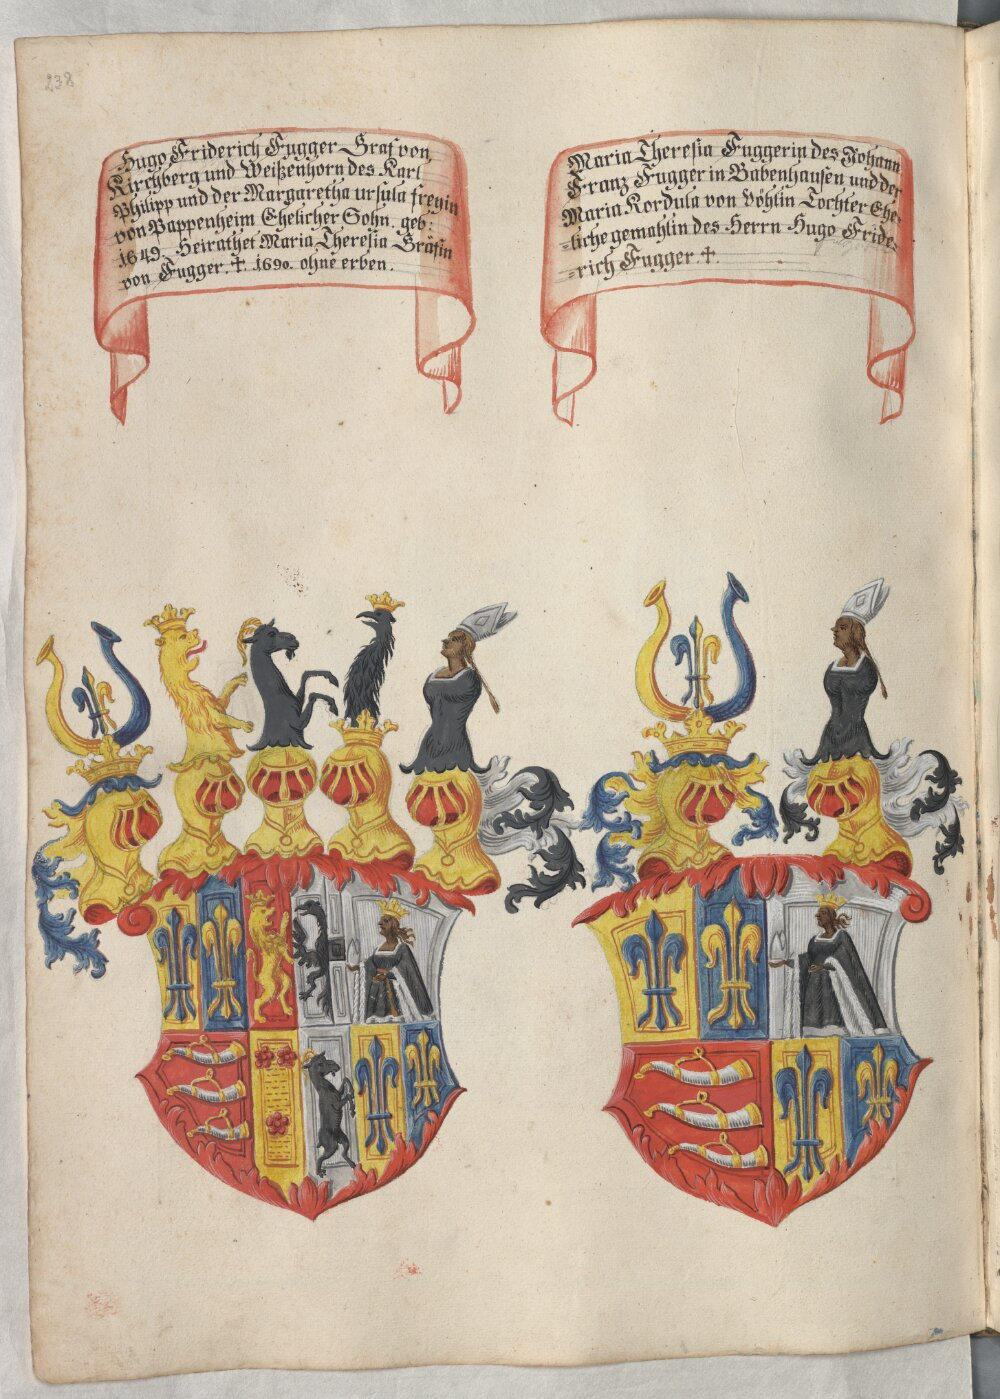 238
Hugo Friderich Fugger Graf von
Kirchberg und Weißenhorn des Karl
Philipp und der Margaretha ursula freyin
von Pappenheim Ehelicher Sohn. geb:
1649. Heirathet Maria Theresia Gräfin
von Fugger ✝. 1690. ohne erben.
Maria Theresia Fuggerin des Johann
Franz Fugger in Babenhausen und der
Maria Kordula von Vöhlin Tochter Ehe-
-liche gemahlin des Herrn Hugo Fride-
-rich Fugger ✝.